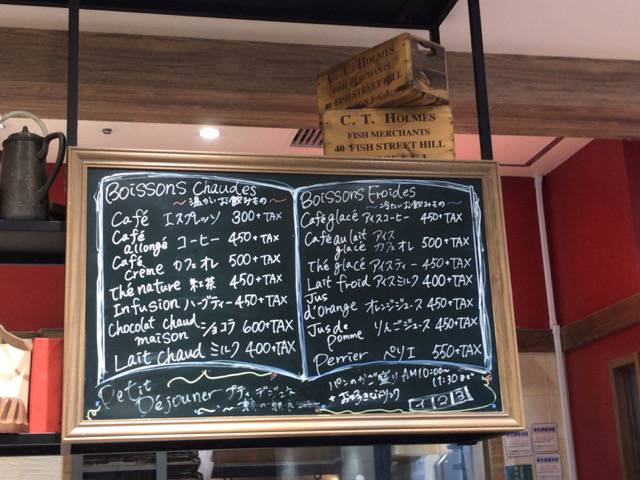 C. T. HOLMES
FISH MERCHANTS
40 FISH STREET HILL
C. T. HOLMES
FISH MERCHANTS
40 FISH STREET HILL
BOISSONS Chaudes
～温かいお飲みもの～
Café エスプレッソ 300+TAX
Café allongé コーヒー 450+TAX
Café Crème カフェオレ 500+TAX
Thé nature 紅茶 450+TAX
Infusion ハーブティー 450+TAX
Chocolat chaud maison ショコラ 600+TAX
Lait chaud ミルク 400+TAX
BOISSONS Froides
～冷たいお飲みもの～
Café glacé アイスコーヒー 450+TAX
Café au lait glacé アイスカフェオレ 500+TAX
Thé glacé アイスティー 450+TAX
Lait froid アイスミルク 400+TAX
Jus d'Orange オレンジジュース 450+TAX
Jus de Pomme りんごジュース 450+TAX
Perrier ペリエ 550+TAX
Petit Déjeuner プティデジュネ
パンのかご盛り AM10:00～11:30まで